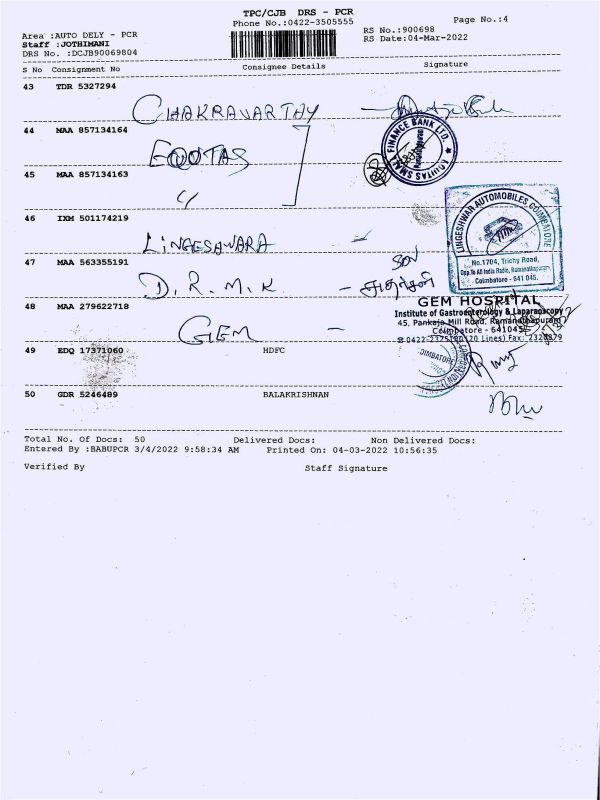 TPC/CJB DRS - PCR
Phone No.:0422-3505555
Page No.:4
Area :AUTO DELY - PCR
RS No.:900698
Staff :JOTHIMANI
RS Date:04-Mar-2022
DRS No. :DCJB90069804
S No Consignment No Consignee Details Signature
43 TDR 5327294
CHAKRAVARTHY
44 MAA 857134164
EQUTAS
EQUITAS SMALL FINANCE BANK LTD.
45 MAA 857134163
〃
46 IXM 501174219
LINGESAWARA
LINGESHWAR AUTOMOBILES COIMBATORE
No.1704, Trichy Road,
Opp.To All India Radio, Ramanathapuram,
Coimbatore - 641 045.
47 MAA 563355191
D.R.M.K - SON
48 MAA 279622718
GEM -
GEM HOSPITAL
Institute of Gastroenterology & Laparoscopy
45, Pankaja Mill Road, Ramanathapuram
Coimbatore - 641045
49 EDQ 17371060 HDFC
50 GDR 5246489 BALAKRISHNAN
Total No. Of Docs: 50 Delivered Docs: Non Delivered Docs:
Entered By :BABUPCR 3/4/2022 9:58:34 AM Printed On: 04-03-2022 10:56:35
Verified By Staff Signature